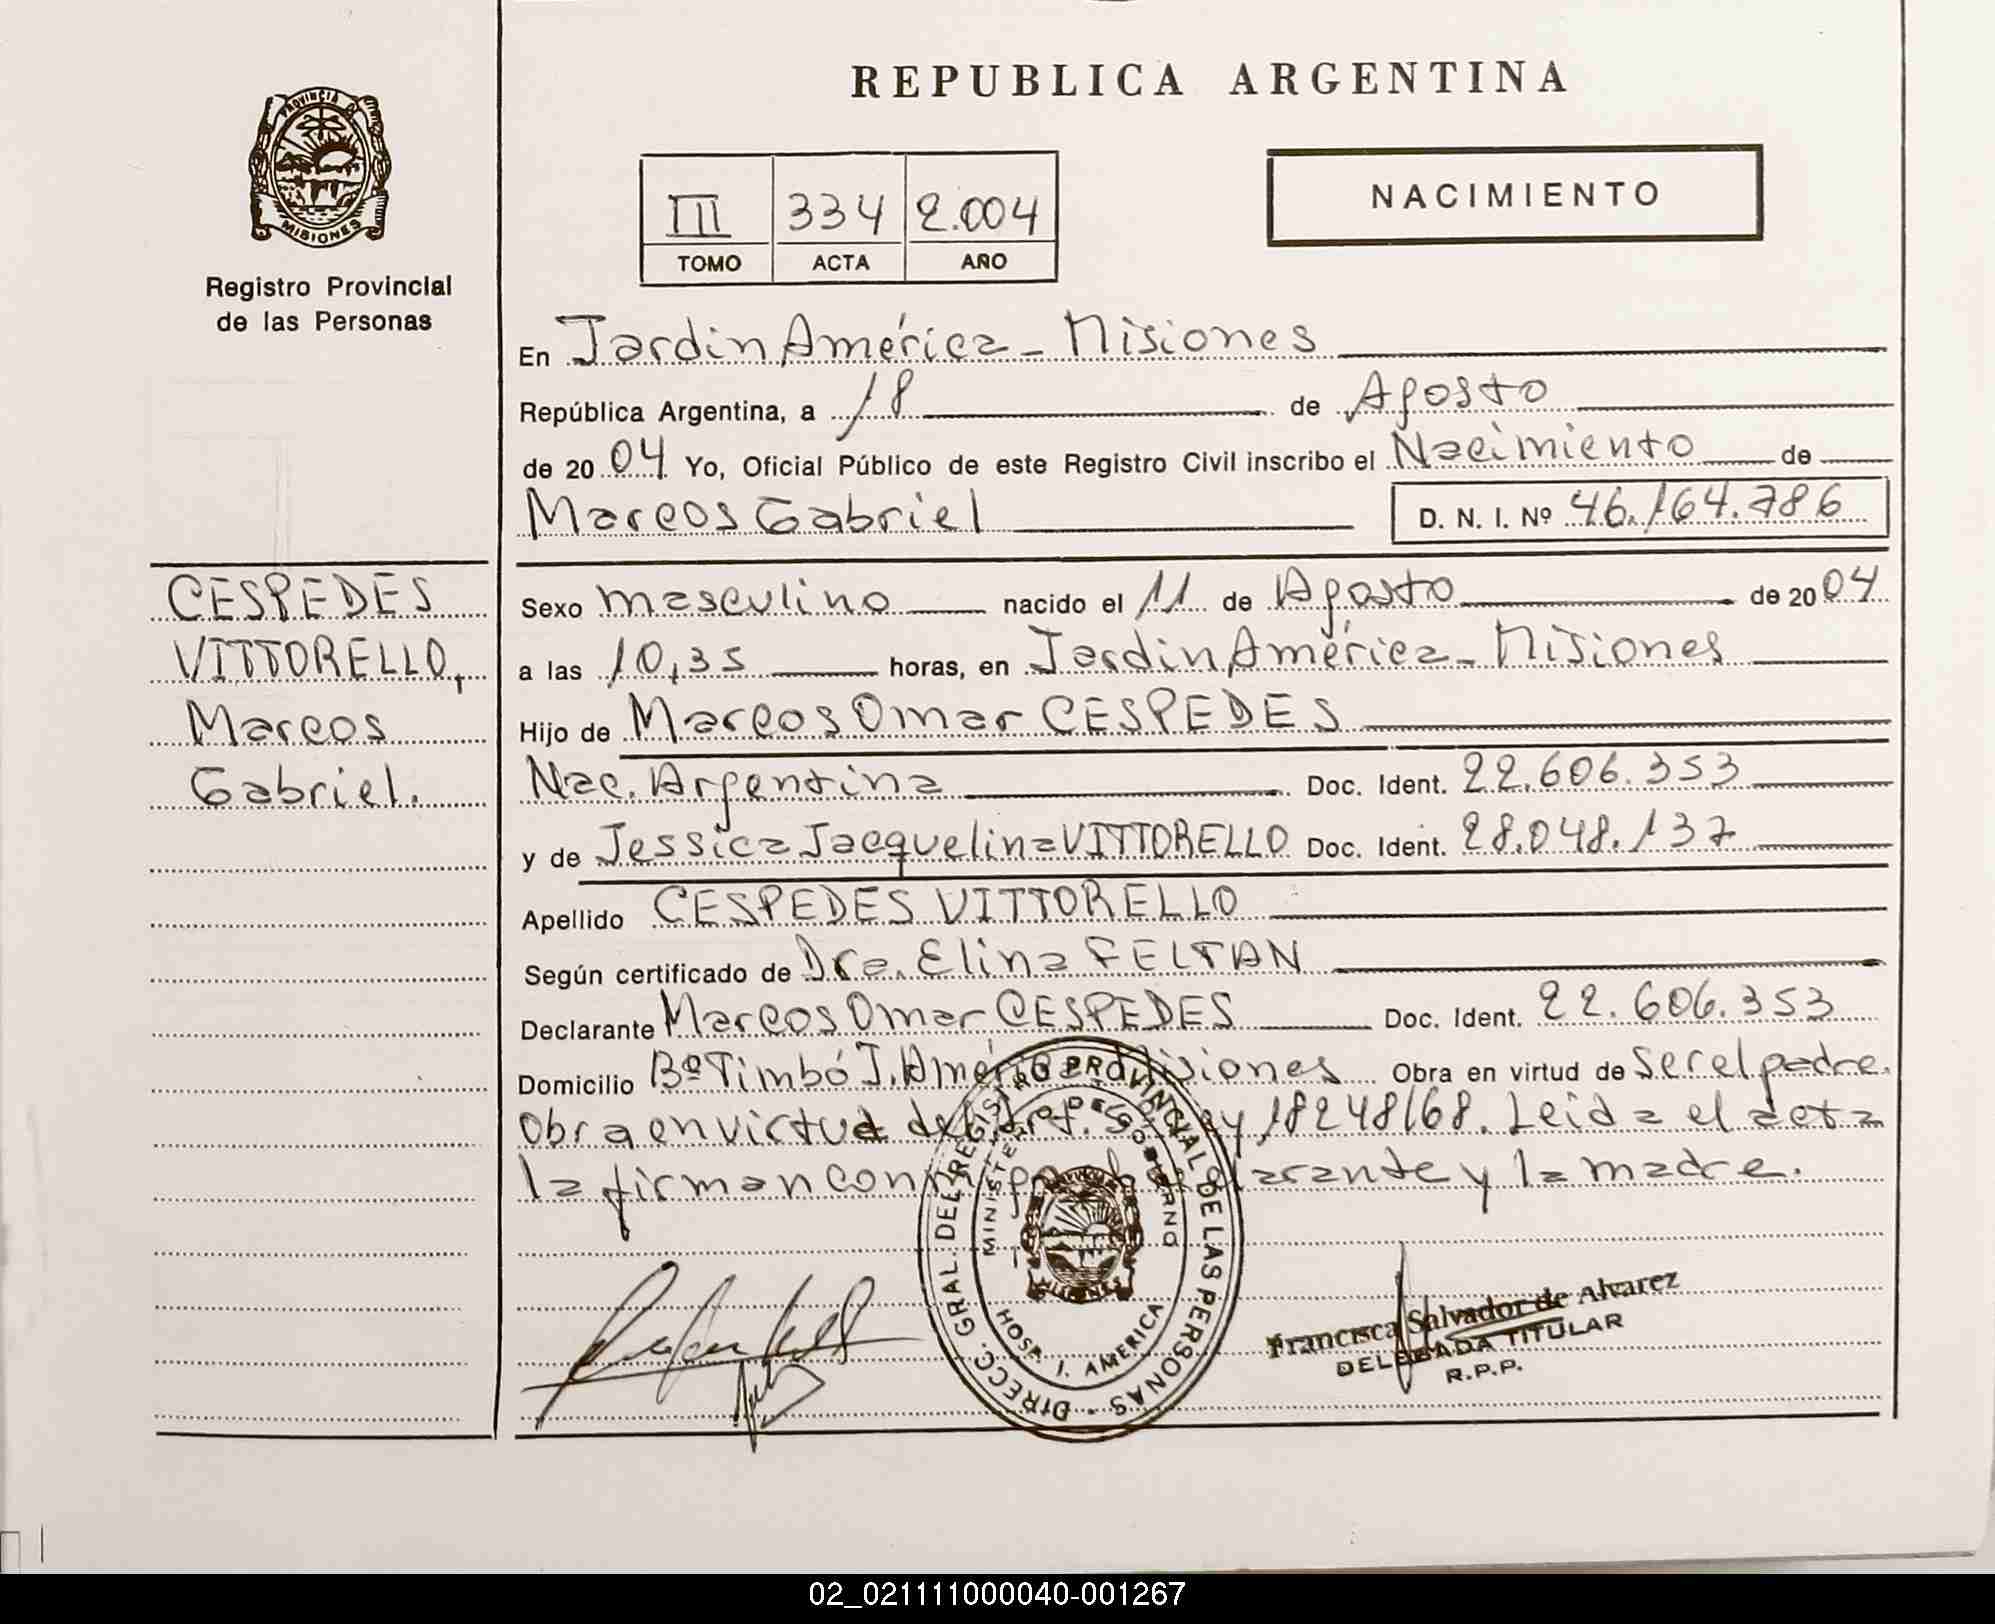 PROVINCIA D
MISIONES
Registro Provincial
de las Personas
REPUBLICA ARGENTINA
III 334 2.004
TOMO ACTA AÑO
NACIMIENTO
En Jardin América - Misiones
República Argentina, a 18 de Agosto
de 2004 Yo, Oficial Público de este Registro Civil inscribo el Nacimiento de
Marcos Gabriel D. N. I. Nº 46.164.786
CESPEDES
VITTORELLO,
Marcos
Gabriel.
Sexo masculino nacido el 11 de Agosto de 2004
a las 10,35 horas, en Jardin América - Misiones
Hijo de Marcos Omar CESPEDES
Nac. Argentina Doc. Ident. 22.606.353
y de Jessica Jacquelina VITTORELLO Doc. Ident. 28.048.137
Apellido CESPEDES VITTORELLO
Según certificado de Dra. Elina FELTAN
Declarante Marcos Omar CESPEDES Doc. Ident. 22.606.353
Domicilio Bº Timbó J. América Misiones Obra en virtud de ser el padre.
Obra en virtud del Art. 18248/68. Leida el acta
la firman con y la madre.
DIRECC. GRAL. DEL REGISTRO PROVINCIAL DE LAS PERSONAS -
MINISTERIO DE GOBIERNO
MISIONES
HOSP. J. AMERICA
Francisca Salvador de Alvarez
DELEGADA TITULAR
R.P.P.
02_021111000040-001267